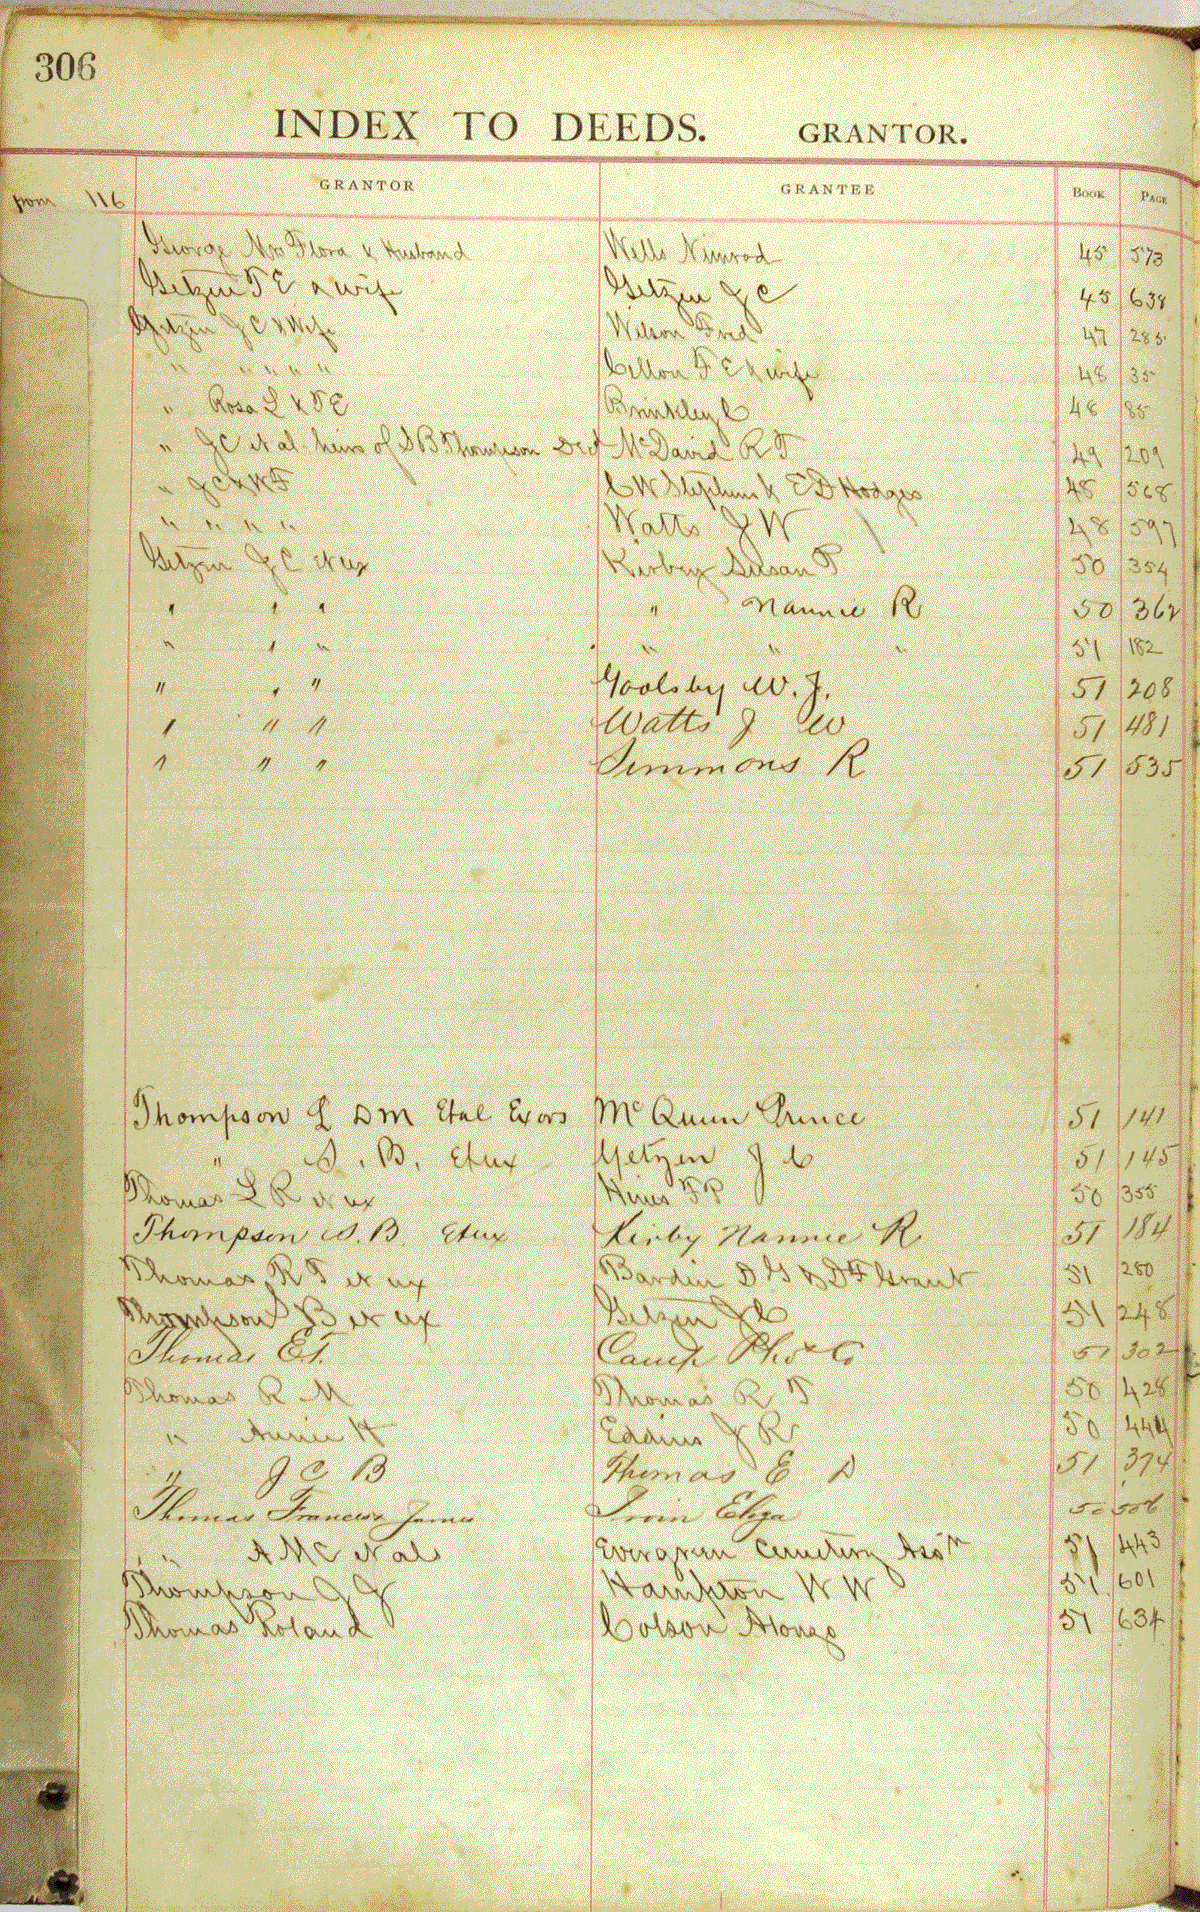 306
INDEX TO DEEDS. GRANTOR.
from 116 GRANTOR GRANTEE BOOK PAGE
George Mrs Flora & Husband Wells Nimrod 45 573
Getzen T E & wife Getzen J C 45 638
Getzen J C & Wife Wilson Fred 47 285
" " " " " F E & wife 48 35
" Rosa L & T E Brinkley C 48 85
" J C et al heirs of S B Thompson Decd McDavid R T 49 209
" J C & W F C W Stephens & E D Hodges 48 568
" " " " Watts J W 48 597
Getzen J C et ux Kirby Susan P 50 354
" " " " Nannie R 50 362
" " " " " " 51 182
" " " Goolsby W. J. 51 208
" " " Watts J W 51 481
" " " Simmons R 51 535
Thompson L D M Etal Exors McQuinn Prince 51 141
" S. B. Etux Getzen J C 51 145
Thomas L R et ux Hines F P 50 355
Thompson S. B. Etux Kirby Nannie R 51 184
Thomas R T et ux Bardin D G & D F Grant 51 280
Thompson S B et ux Getzen J C 51 248
Thomas E. T. Camp Phos Co 51 302
Thomas R M Thomas R T 50 428
" Annie H Eddins J R 50 444
" J C B Thomas E D 51 374
Thomas Frances James Irvin Eliza 50 506
" " A M C et al Evergreen Cemetery Assn 51 443
Thompson J J Hampton W W 51 601
Thomas Roland Colson Alonzo 51 634